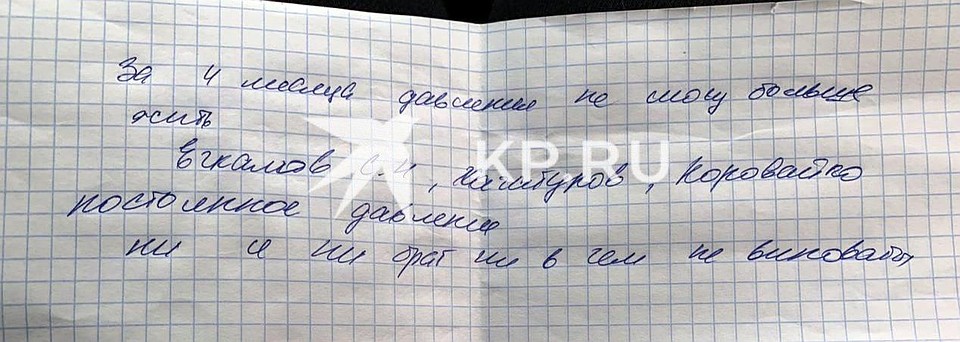 За 4 месяца давления не могу больше
жить
KP.RU
, Хачатуров, Коровайко
постоянное давление
ни я ни брат ни в чем не виноваты